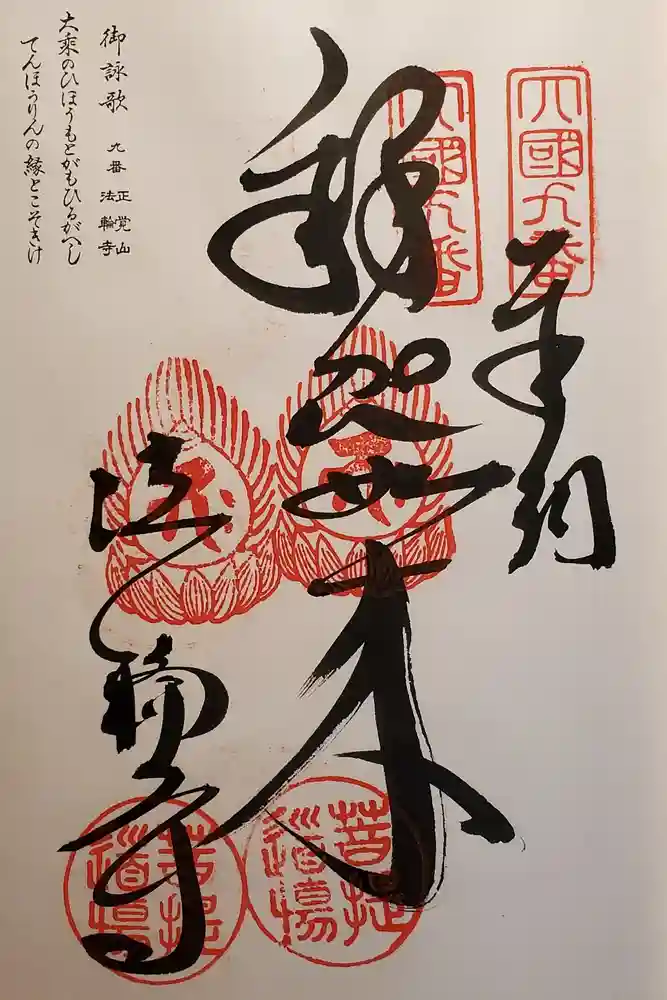 四國九番
四國九番
奉納
釋迦如来
法輪寺
菩提道場
菩提道場
御詠歌 九番 正覚山 法輪寺
大乘のひほうもとがもひるがへし
てんほうりんの縁とこそきけ